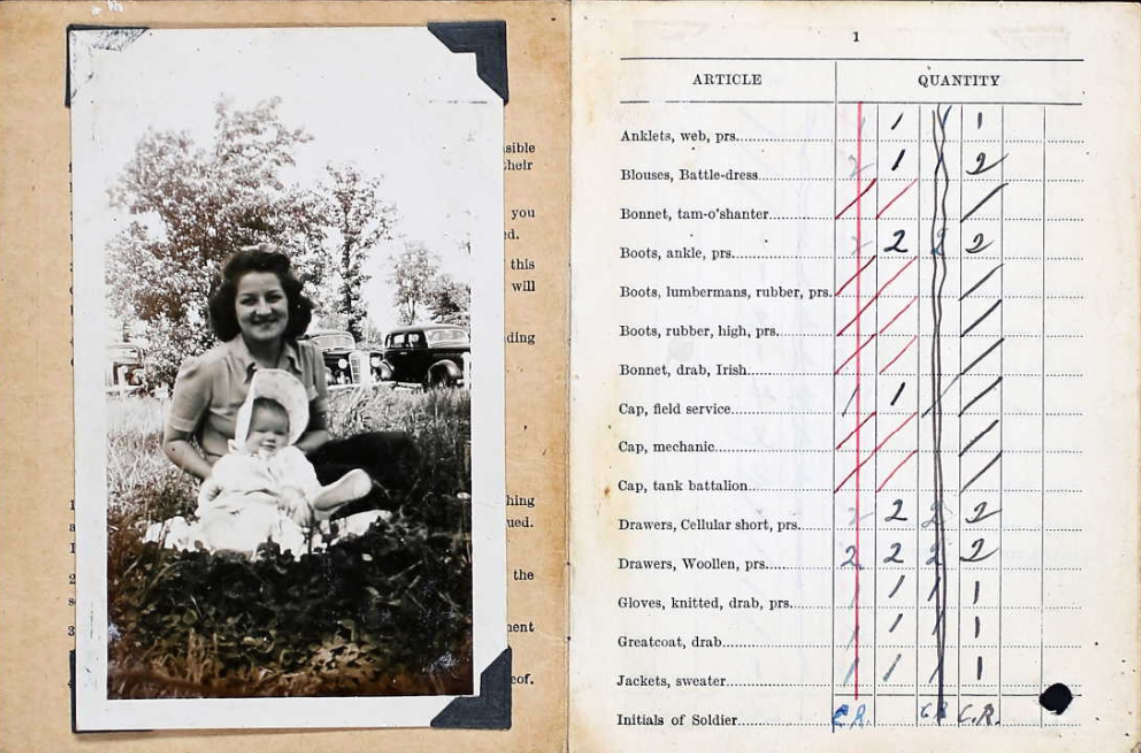 sible
their
you
ed.
this
will
ding
1
hing
ued.
2
the
3
ment
eof.
1
ARTICLE QUANTITY
Anklets, web, prs. 1 1
Blouses, Battle-dress 2 1 2
Bonnet, tam-o'shanter
Boots, ankle, prs. 2 2 2 2
Boots, lumbermans, rubber, prs.
Boots, rubber, high, prs.
Bonnet, drab, Irish
Cap, field service 1 1
Cap, mechanic
Cap, tank battalion
Drawers, Cellular short, prs. 2 2 2 2
Drawers, Woollen, prs. 2 2 2 2
Gloves, knitted, drab, prs. 1 1 1 1
Greatcoat, drab 1 1 1 1
Jackets, sweater 1 1 1 1
Initials of Soldier C.R. C.R. C.R.